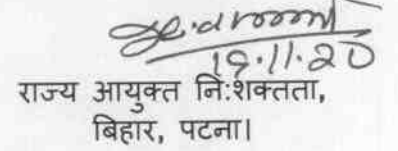 19.11.20
राज्य आयुक्त निःशक्तता,
बिहार, पटना।